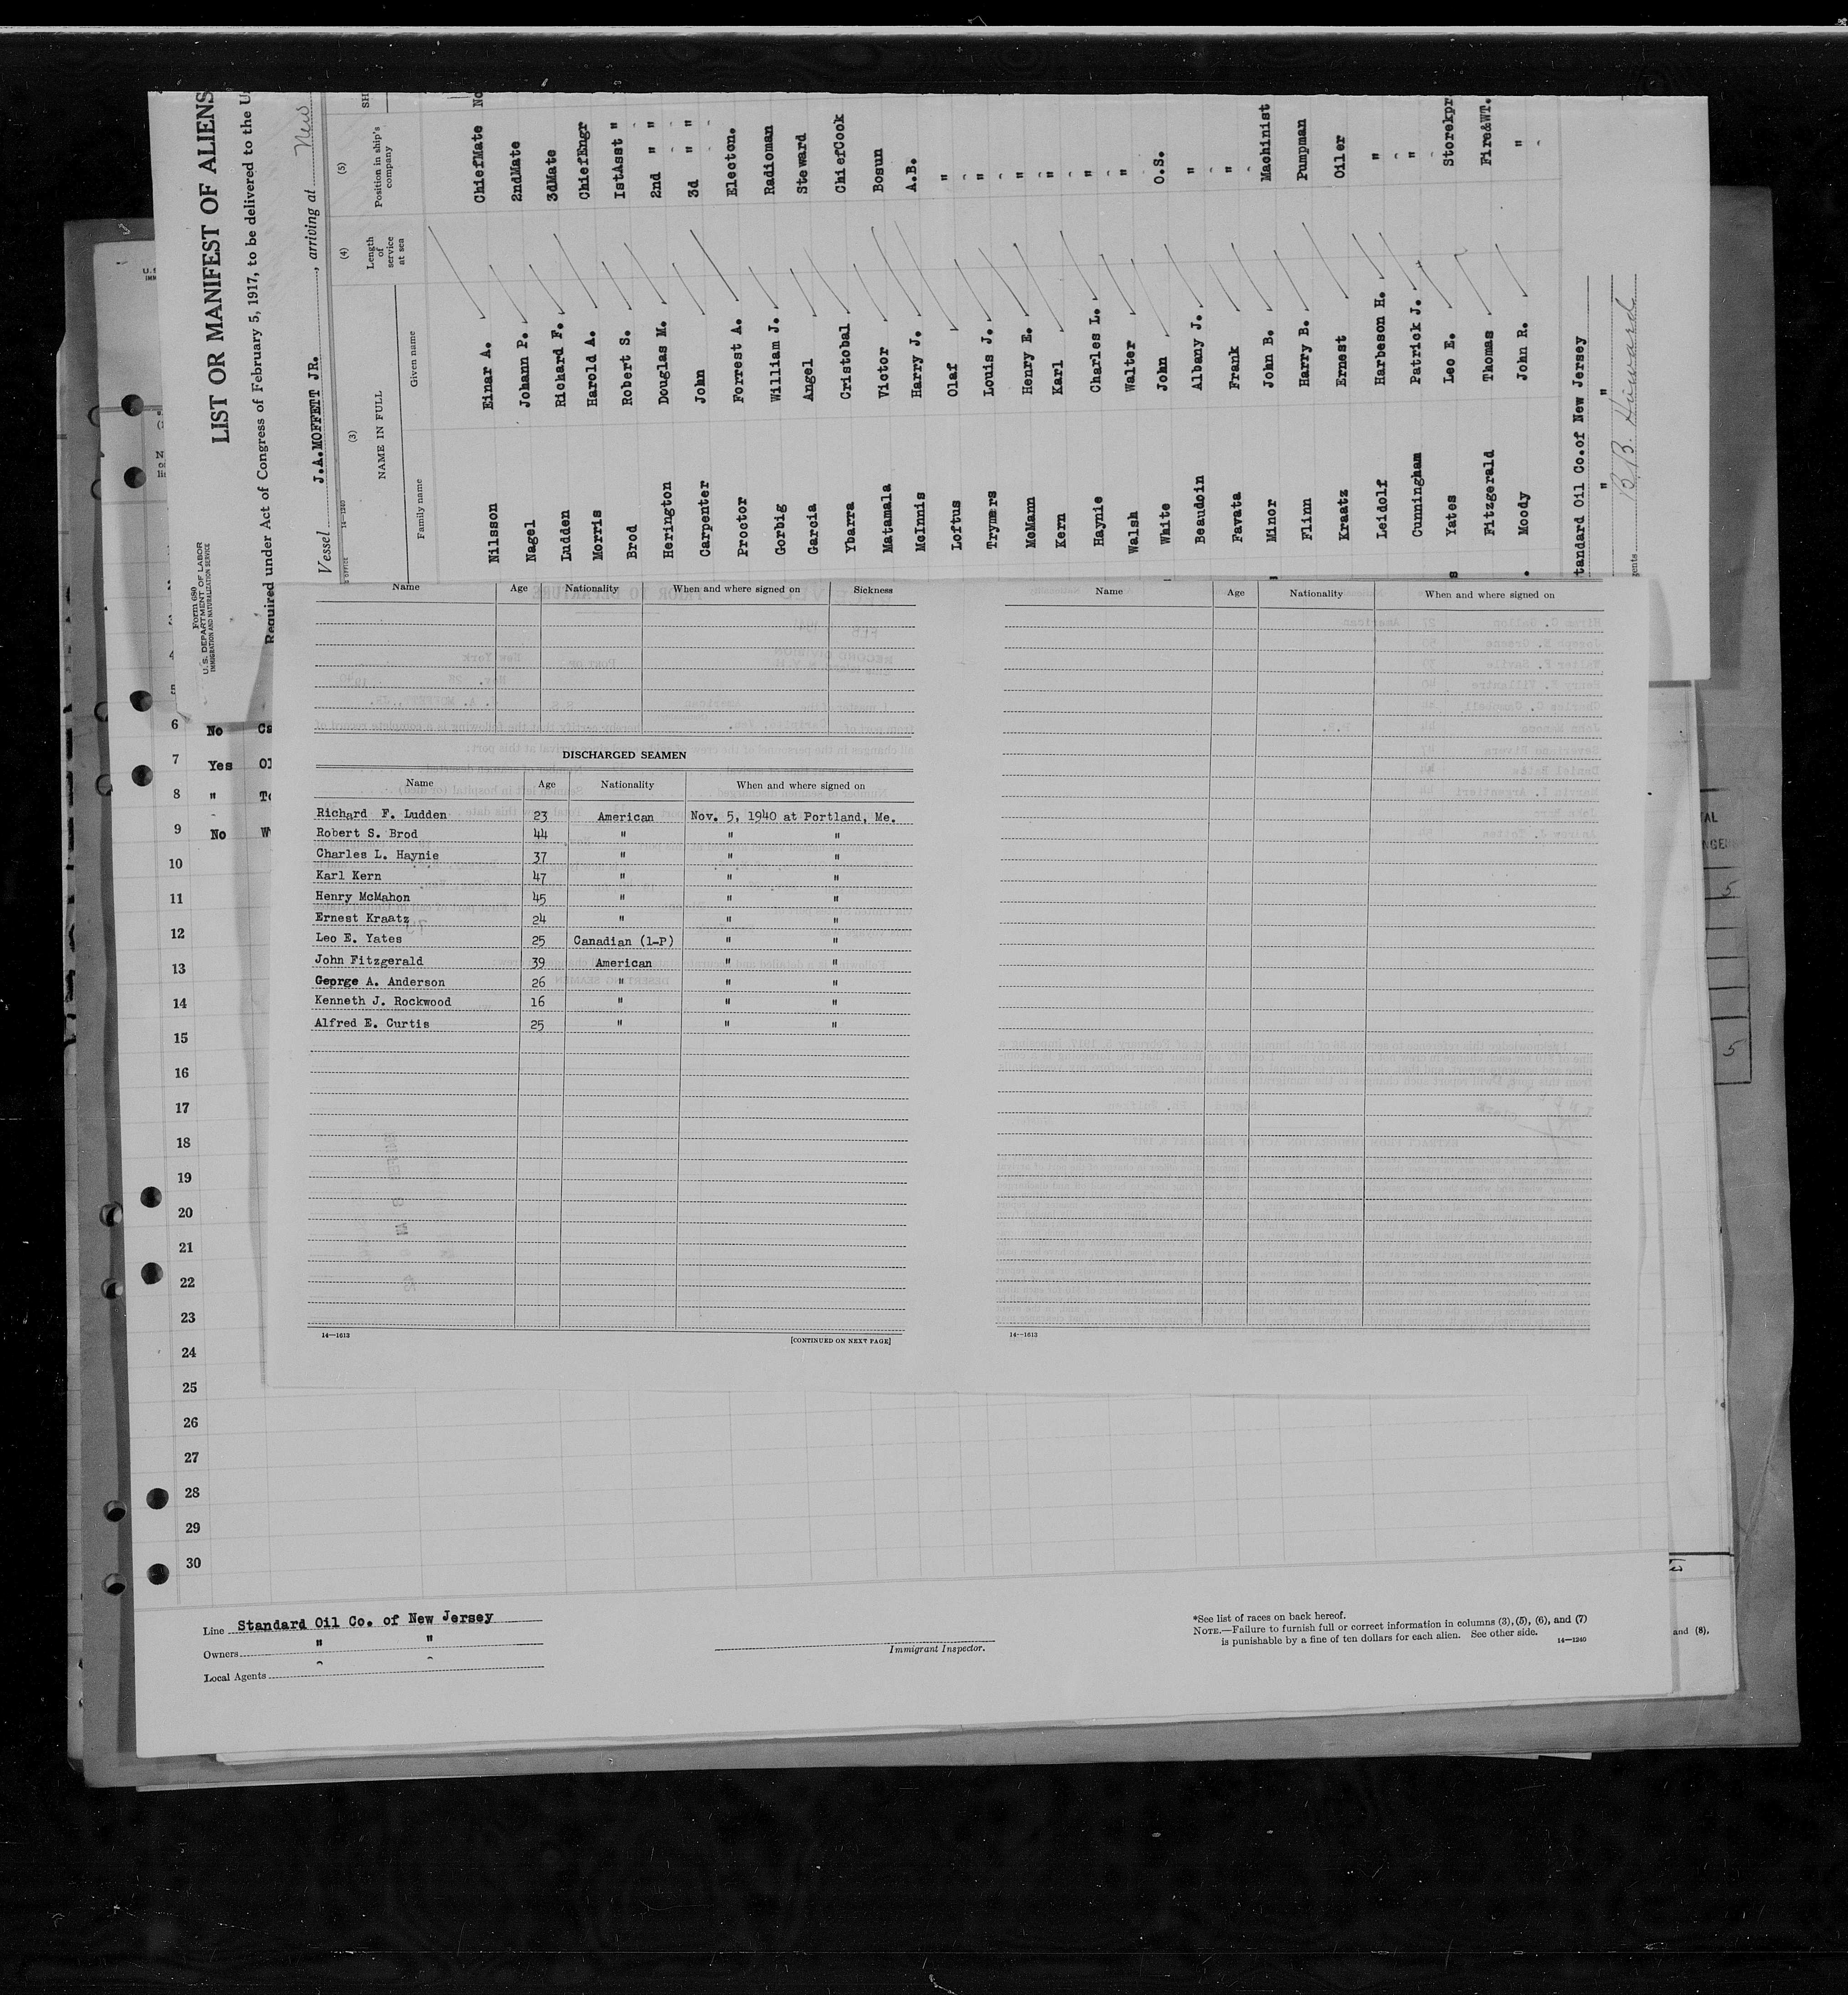 LIST OR MANIFEST OF ALIENS
Required under Act of Congress of February 5, 1917, to be delivered to the
Form 680
U. S. DEPARTMENT OF LABOR
IMMIGRATION AND NATURALIZATION SERVICE
Vessel J.A.MOFFETT JR., arriving at New
14—1240
(3) (4) (5)
NAME IN FULL Length of service at sea Position in ship's company
Family name Given name
Nilsson Einar A. ChiefMate No
Nagel Johann P. 2ndMate
Ludden Richard F. 3dMate
Morris Harold A. ChiefEngr
Brod Robert S. IstAsst "
Herington Douglas M. 2nd " "
Carpenter John 3d " "
Proctor Forrest A. Electcn.
Gorbig William J. Radioman
Garcia Angel Steward
Ybarra Cristobal ChiefCook
Matamala Victor Bosun
McInnis Harry J. A.B.
Loftus Olaf "
Trymers Louis J. "
McMann Henry E. "
Kern Karl "
Haynie Charles L. "
Walsh Walter "
White John O.S.
Beaudoin Albany J. "
Favata Frank "
Minor John B. Machinist
Flinn Harry B. Pumpman
Kraatz Ernest Oiler
Leidolf Harbeson H. "
Cunningham Patrick J. "
Yates Leo E. Storekpr
Fitzgerald Thomas Fire&WT.
Moody John R. "
tandard Oil Co.of New Jersey
" "
gents B. B. Howard
Name Age Nationality When and where signed on Sickness
DISCHARGED SEAMEN
Name Age Nationality When and where signed on
Richard F. Ludden 23 American Nov. 5, 1940 at Portland, Me.
Robert S. Brod 44 " " "
Charles L. Haynie 37 " " "
Karl Kern 47 " " "
Henry McMahon 45 " " "
Ernest Kraatz 24 " " "
Leo E. Yates 25 Canadian (1-P) " "
John Fitzgerald 39 American " "
George A. Anderson 26 " " "
Kenneth J. Rockwood 16 " " "
Alfred E. Curtis 25 " " "
14—1613 [CONTINUED ON NEXT PAGE]
Name Age Nationality When and where signed on
14—1613
4
6 No Ca
7 Yes Ol
8 " To
9 No W
10
11
12
13
14
15
16
17
18
19
20
21
22
23
24
25
26
27
28
29
30
5
5
Line Standard Oil Co. of New Jersey
Owners " "
Local Agents
Immigrant Inspector.
*See list of races on back hereof.
NOTE.—Failure to furnish full or correct information in columns (3), (5), (6), and (7)
is punishable by a fine of ten dollars for each alien. See other side. 14—1240
and (8),